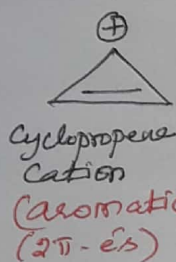 ⊕
Cyclopropene
Cation
(aromatic
(2π-és)